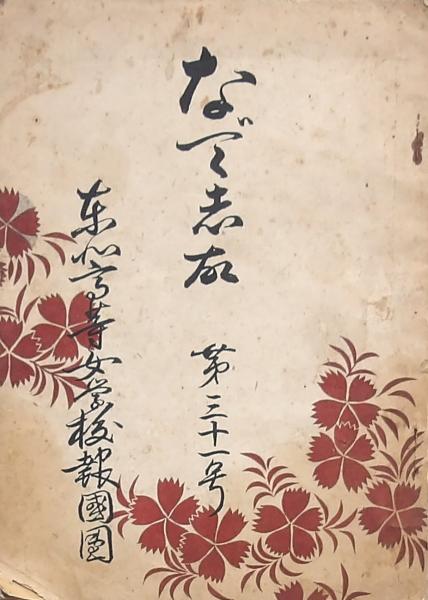 なでし故
第三十一号
東北高等女学校報國團